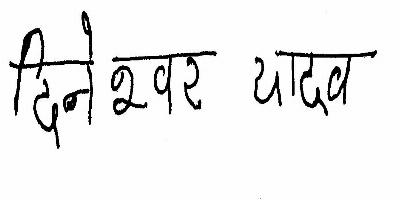 दिनेश्वर यादव